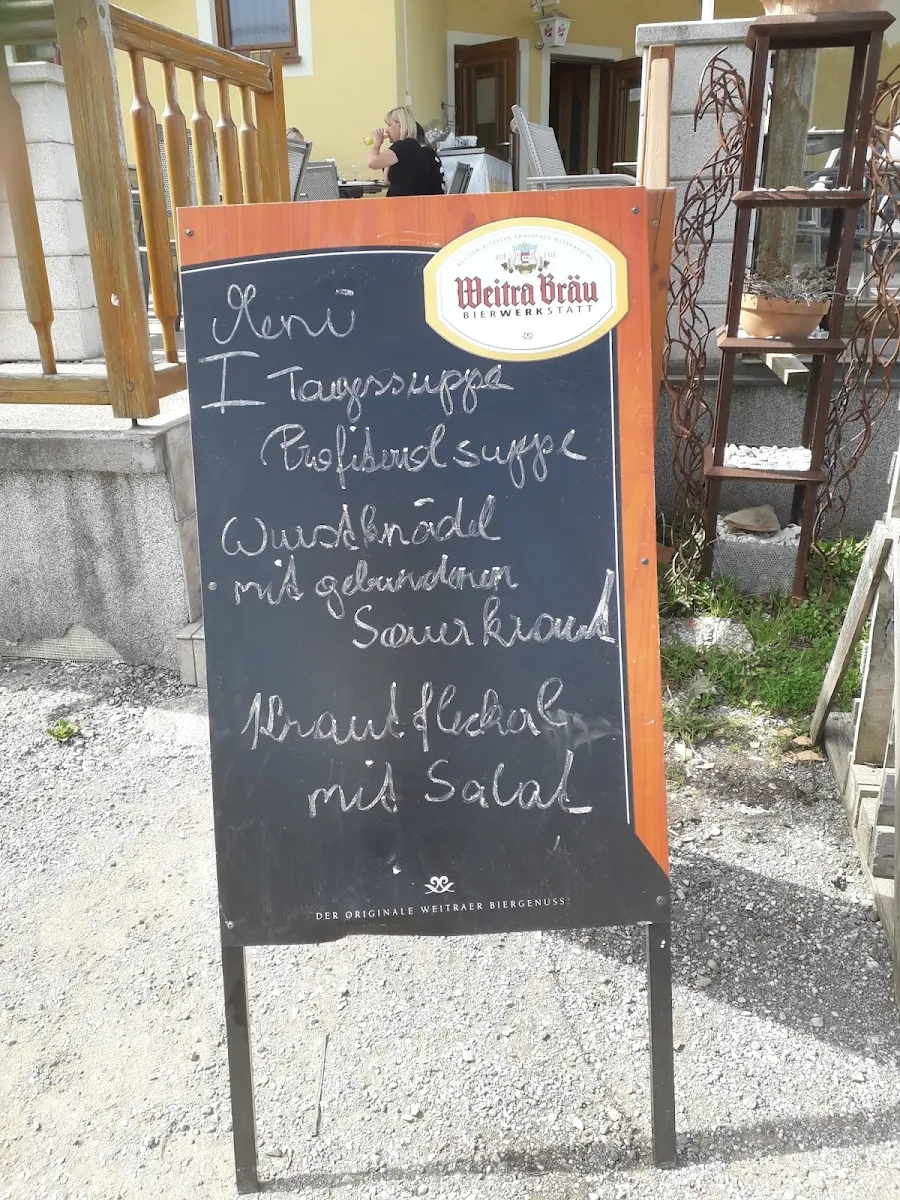 Weitra Bräu
BIERWERKSTATT
Menü
I Tagessuppe
Profiterolsuppe
Wurstknödel
mit gebundenen
Sauerkraut
Krautfleckal
mit Salat
DER ORIGINALE WEITRAER BIERGENUSS